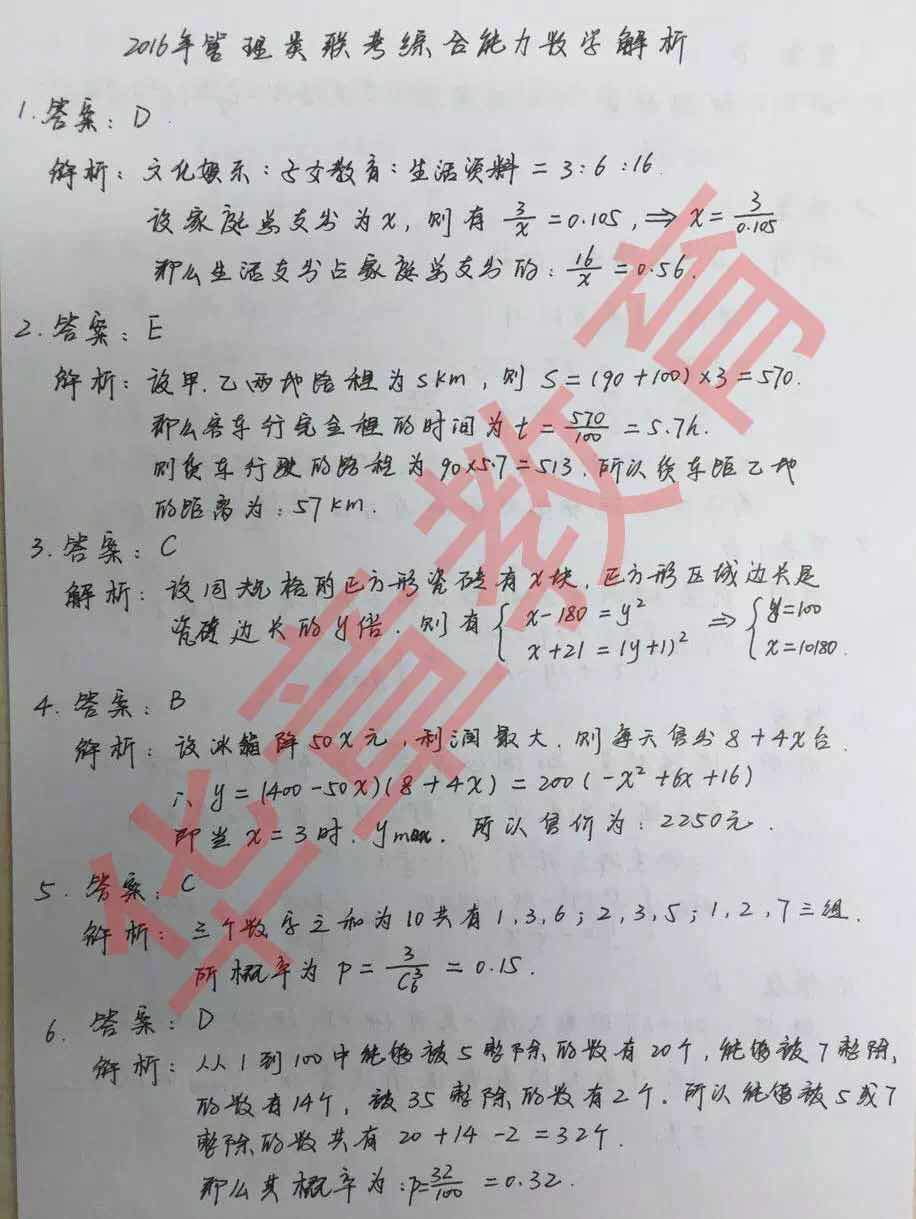 2016年管理类联考综合能力数学解析
1. 答案：D
解析：文化娱乐：子女教育：生活资料 = 3:6:16.
设家庭总支出为x，则有 3/x = 0.105，⇒ x = 3/0.105
那么生活支出占家庭总支出的：16/x = 0.56.
2. 答案：E
解析：设甲.乙两地路程为SKm，则 S = (90+100)×3 = 570.
那么客车行完全程的时间为 t = 570/100 = 5.7h.
则货车行驶的路程为 90×5.7 = 513. 所以货车距乙地
的距离为：57Km.
3. 答案：C
解析：设同规格的正方形瓷砖有x块，正方形区域边长是
瓷砖边长的y倍. 则有 { x-180 = y² ⇒ { y=100
x+21 = (y+1)² x=10180.
4. 答案：B
解析：设冰箱降50x元，利润最大. 则每天售出 8+4x台.
∴ y = (400-50x)(8+4x) = 200(-x²+6x+16)
即当 x=3时. ymax. 所以售价为：2250元.
5. 答案：C
解析：三个数字之和为10共有 1,3,6；2,3,5；1,2,7三组.
所概率为 P = 3/C₆³ = 0.15.
6. 答案：D
解析：从1到100中能够被5整除的数有20个，能够被7整除
的数有14个，被35整除的数有2个. 所以能够被5或7
整除的数共有 20+14-2=32个.
那么其概率为：P=32/100 = 0.32.
华章教育